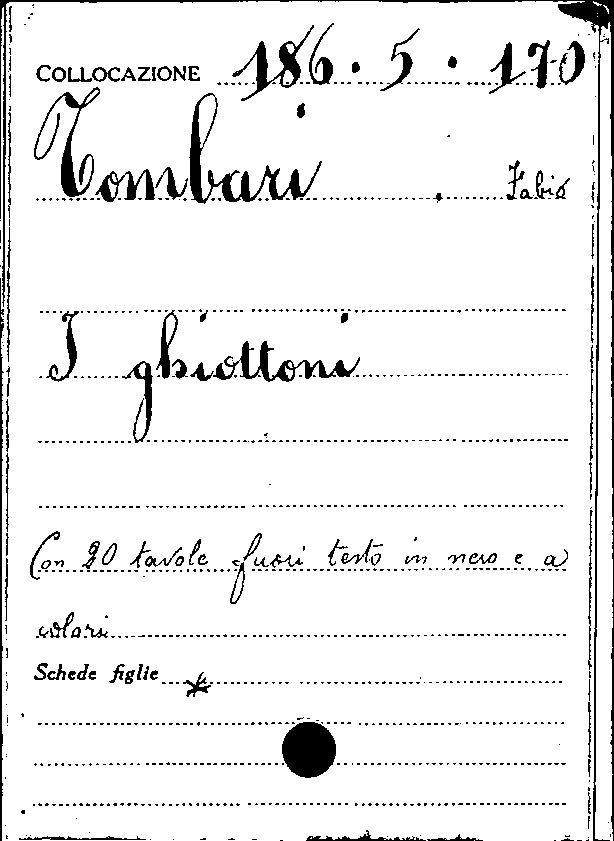 COLLOCAZIONE 186.5.170
Tombari. Fabio
I ghiottoni
Con 20 tavole fuori testo in nero e a
colori
Schede figlie *